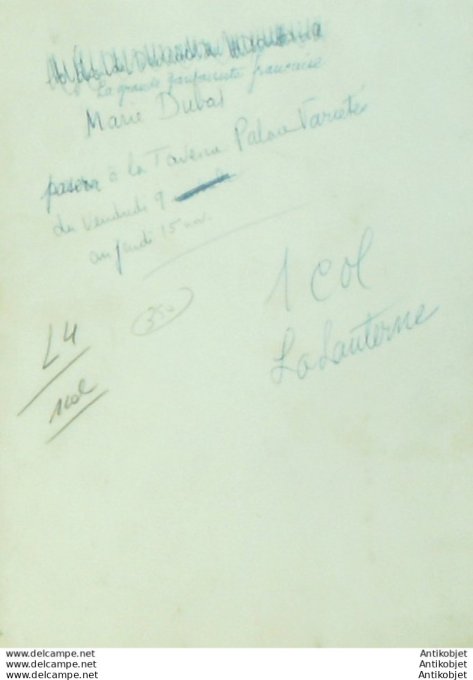 La grande fantaisiste française
Marie Dubas
passera à la Taverne Palace Variétés
du vendredi 9
au jeudi 15 nov.
350
1 col
La Lanterne
L4
1 col
www.delcampe.net
www.delcampe.net
Antikobjet
Antikobjet